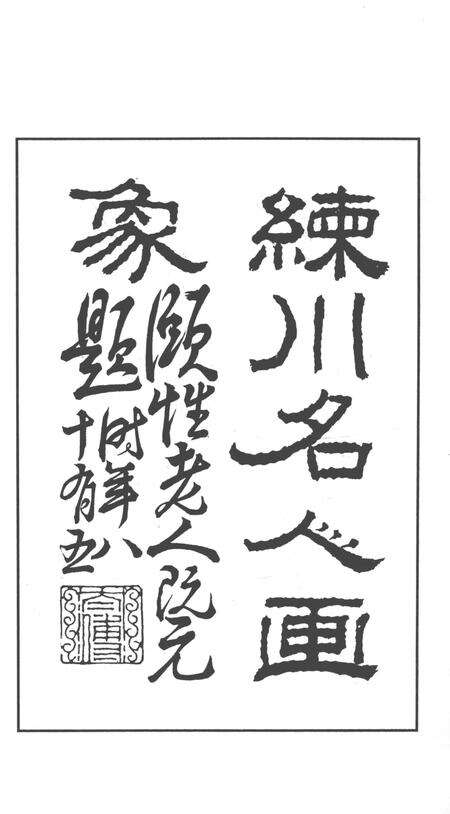 練川名人画
象
頤性老人阮元
題
时年八
十有五
太傅